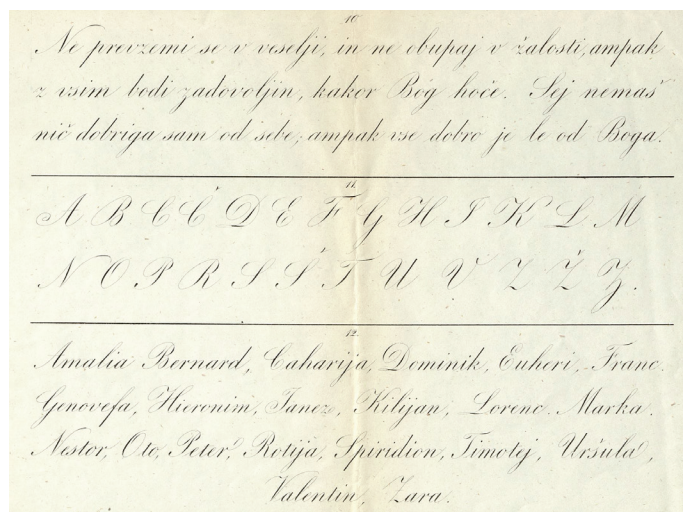 10.
Ne prevzemi se v veselji, in ne obupaj v žalosti, ampak
z vsim bodi zadovoljin, kakor Bog hoče. Sej nemaš
nič dobriga sam od sebe; ampak vse dobro je le od Boga.
11.
A B C Č D E F G H I K L M
N O P R S Š T U V Z Ž Z.
12.
Amalia Bernard, Caharija, Dominik, Euheri, Franc.
Genovefa, Hieronim, Janez, Kilijan, Lorenc. Marka.
Nestor, Oto, Peter, Rotija, Spiridion, Timotej, Uršula,
Valentin, Zara.